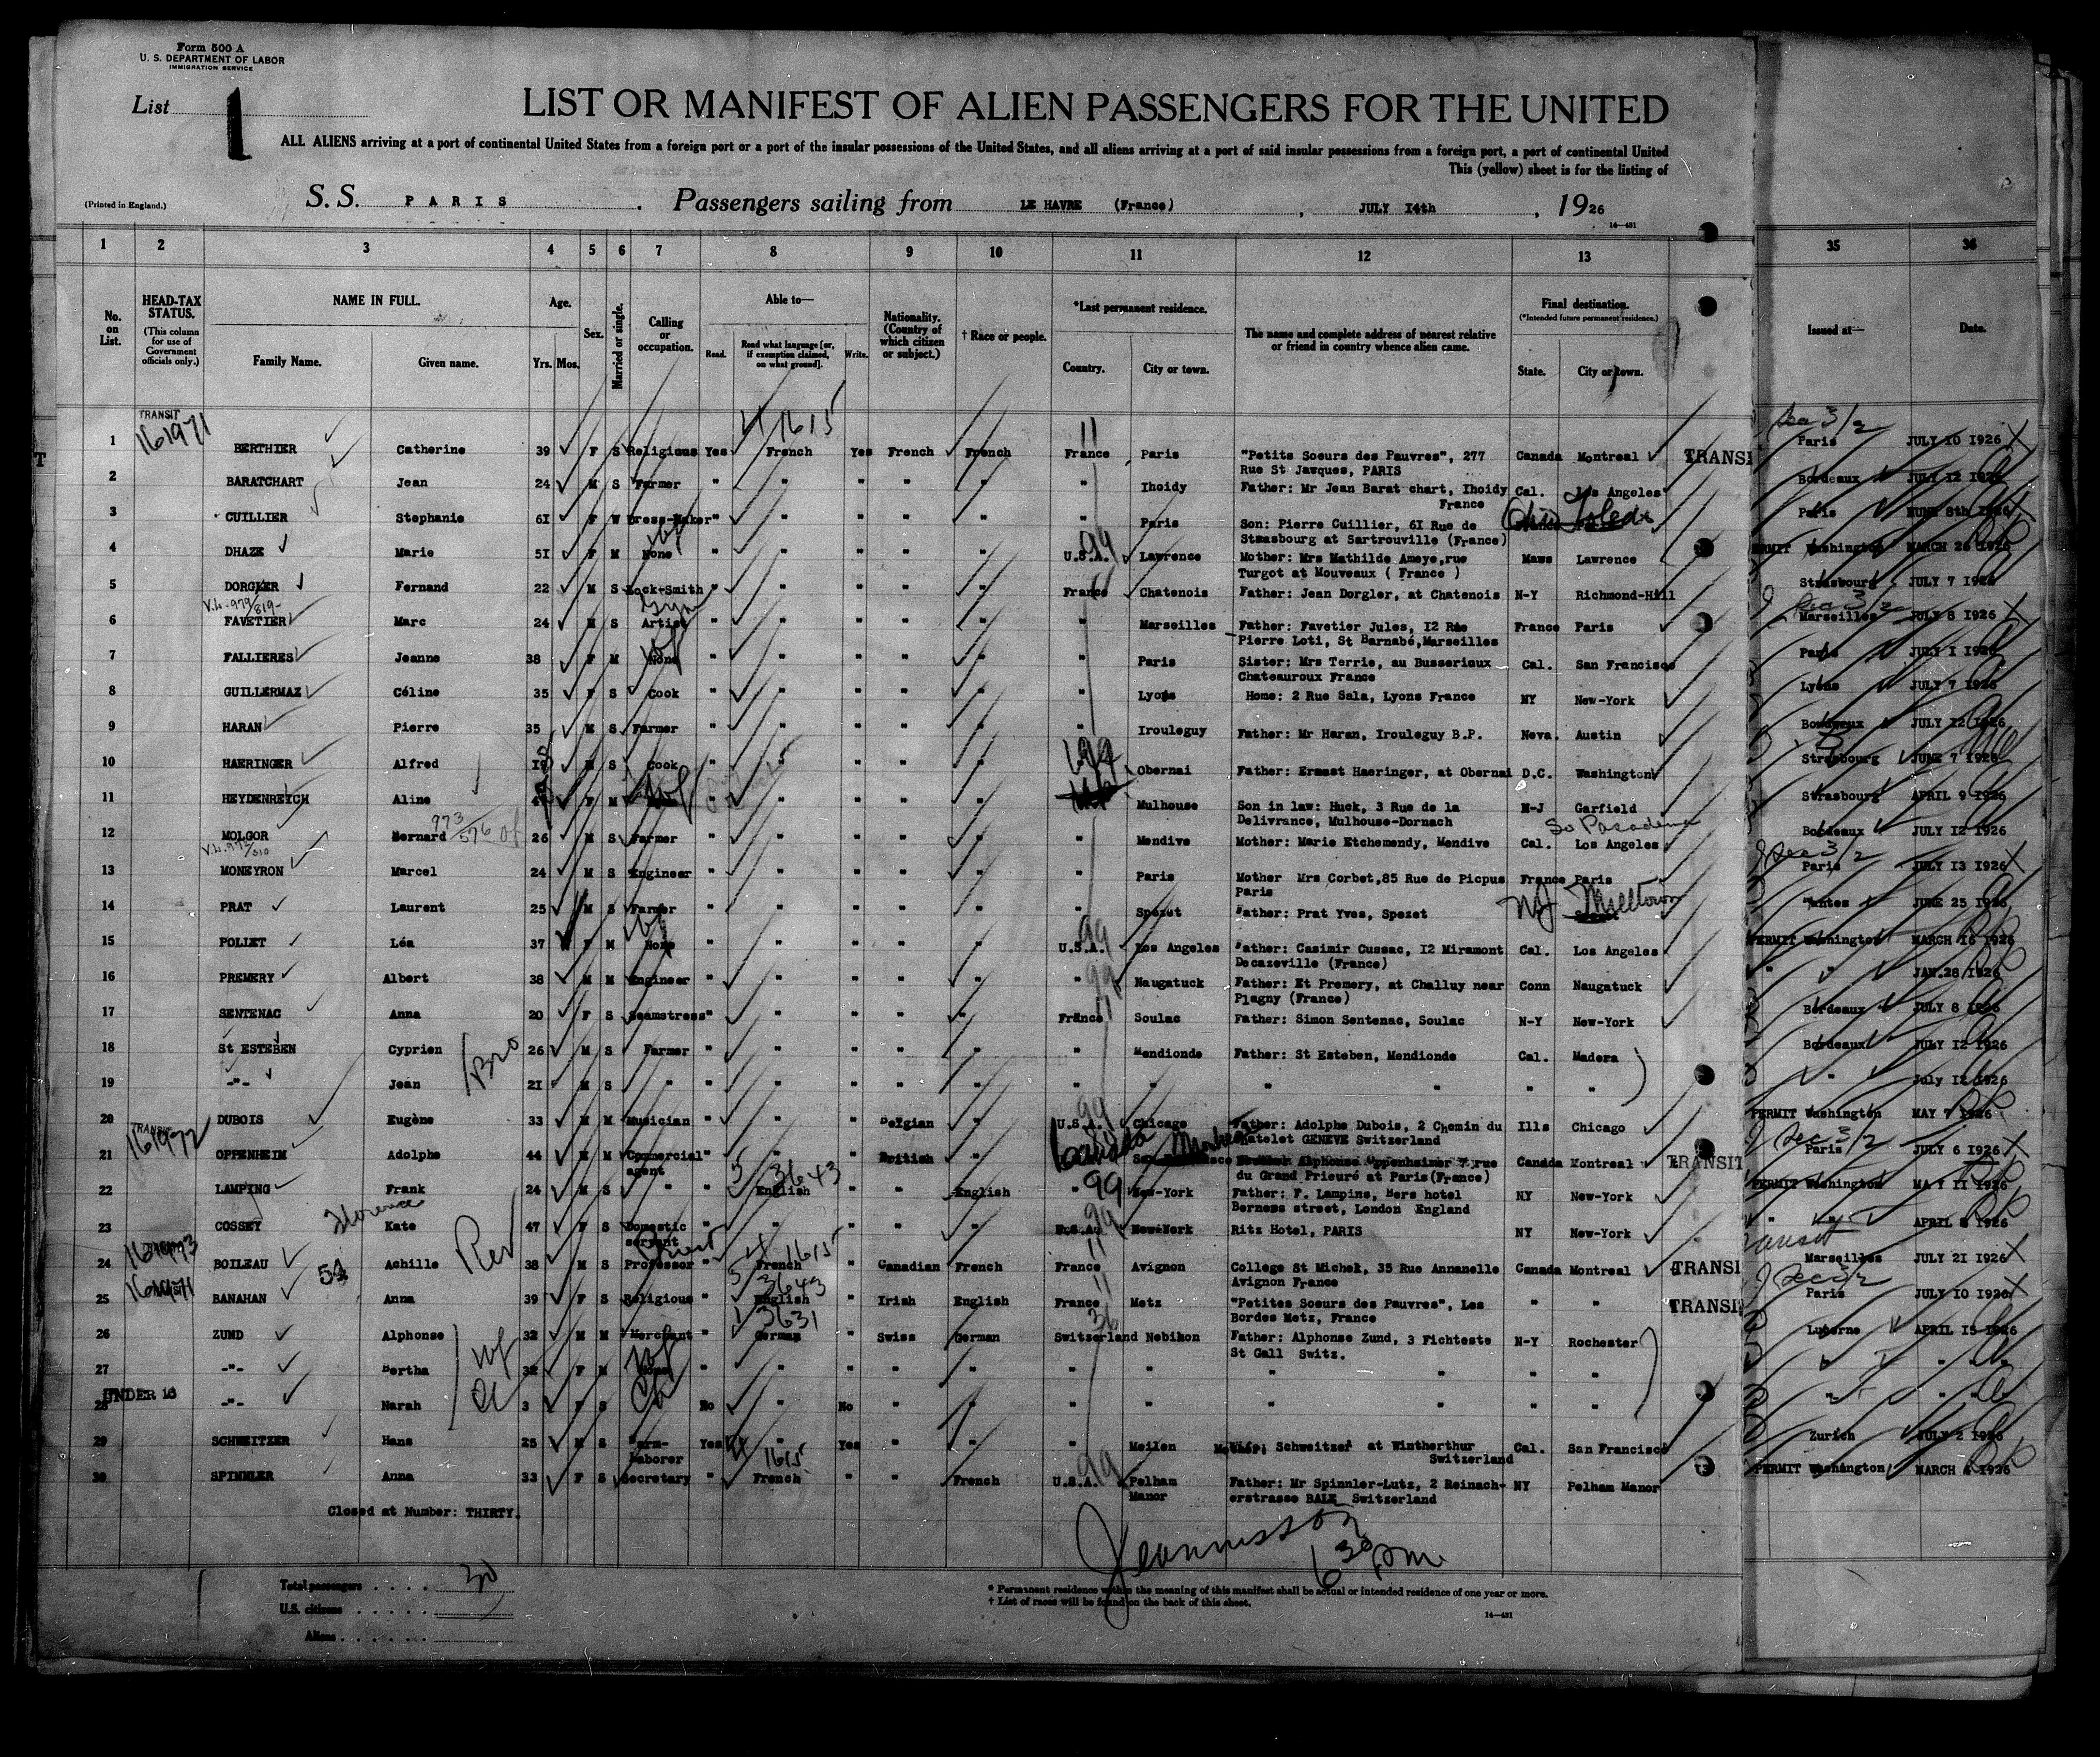 Form 500 A
U. S. DEPARTMENT OF LABOR
IMMIGRATION SERVICE
List 1
LIST OR MANIFEST OF ALIEN PASSENGERS FOR THE UNITED
ALL ALIENS arriving at a port of continental United States from a foreign port or a port of the insular possessions of the United States, and all aliens arriving at a port of said insular possessions from a foreign port, a port of continental United
This (yellow) sheet is for the listing of
(Printed in England.)
S. S. PARIS . Passengers sailing from LE HAVRE (France) , JULY I4th , 1926
14—481
1 2 3 4 5 6 7 8 9 10 11 12 13 35 36
No. on List.
HEAD-TAX STATUS.
(This column for use of Government officials only.)
NAME IN FULL.
Family Name. Given name.
Age.
Yrs. Mos.
Sex.
Married or single.
Calling or occupation.
Able to—
Read. Read what language [or, if exemption claimed, on what ground]. Write.
Nationality. (Country of which citizen or subject.)
† Race or people.
*Last permanent residence.
Country. City or town.
The name and complete address of nearest relative or friend in country whence alien came.
Final destination.
(*Intended future permanent residence.)
State. City or town.
Issued at— Date.
TRANSIT
161971 4 1615 11 Sec 3/2
1 BERTHIER Catherine 39 F S Religious Yes French Yes French French France Paris "Petits Soeurs des Pauvres", 277 Canada Montreal TRANSI Paris JULY IO I926
Rue St Jawques, PARIS
2 BARATCHART Jean 24 M S Farmer " " " " " " Ihoidy Father: Mr Jean Barat chart, Ihoidy Cal. Los Angeles Bordeaux JULY I2 I926
France
3 CUILLIER Stephanie 6I F W Dress-Maker " " " " " " Paris Son: Pierre Cuillier, 6I Rue de Ohio Toledo Paris JUNE 8th I926
Strasbourg at Sartrouville (France)
4 DHAZE Marie 5I F M None " " " " " U.S.A. 99 Lawrence Mother: Mrs Mathilde Ameye,rue Maws Lawrence PERMIT Washington MARCH 26 I926
Turgot at Mouveaux ( France )
5 DORGLER Fernand 22 M S Lock-Smith " " " " " France Chatenois Father: Jean Dorgler, at Chatenois N-Y Richmond-Hill Strasbourg JULY 7 I926
V.L.-979/819- Sec 3/2
6 FAVETIER Marc 24 M S Artist " " " " " " Marseilles Father: Favetier Jules, I2 Rue France Paris Marseilles JULY 8 I926
Pierre Loti, St Barnabé,Marseilles
7 FALLIERES Jeanne 38 F M None wf " " " " " " Paris Sister: Mrs Terrie, au Busseriaux Cal. San Francisco Paris JULY I I926
Chateauroux France
8 GUILLERMAZ Céline 35 F S Cook " " " " " " Lyons Home: 2 Rue Sala, Lyons France NY New-York Lyons JULY 7 I926
9 HARAN Pierre 35 M S Farmer " " " " " " Irouleguy Father: Mr Haran, Irouleguy B.P. Neva. Austin Bordeaux JULY I2 I926
10 HAERINGER Alfred I9 M S Cook " " " " " Obernai Father: Ernest Haeringer, at Obernai D.C. Washington Strasbourg JUNE 7 I926
11 HEYDENREICH Aline F M wf " " " " Mulhouse Son in law: Huck, 3 Rue de la N-J Garfield Strasbourg APRIL 9 I926
Delivrance, Mulhouse-Dornach
973/576 So Pasadena
12 MOLGOR Bernard 26 M S Farmer " " " " " " Mendive Mother: Marie Etchemendy, Mendive Cal. Los Angeles Bordeaux JULY I2 I926
Sec 3/2
13 MONEYRON Marcel 24 M S Engineer " " " " " " Paris Mother Mrs Corbet,85 Rue de Picpus France Paris Paris JULY I3 I926
Paris
14 PRAT Laurent 25 M S Farmer " " " " " " Spezet Father: Prat Yves, Spezet NJ Milltown Nantes JUNE 25 I926
15 POLLET Léa 37 F M None wf " " " " " U.S.A. 99 Los Angeles Father: Casimir Cussac, I2 Miramont Cal. Los Angeles PERMIT Washington MARCH I6 I926
Decazeville (France)
16 PREMERY Albert 38 M M Engineer " " " " " " 99 Naugatuck Father: Et Premery, at Challuy near Conn Naugatuck " " JAN.28 I926
Plagny (France)
17 SENTENAC Anna 20 F S Seamstress " " " " " France 11 Soulac Father: Simon Sentenac, Soulac N-Y New-York Bordeaux JULY 8 I926
18 St ESTEBEN Cyprien Bro 26 M S Farmer " " " " " " Mendionde Father: St Esteben, Mendionde Cal. Madera Bordeaux JULY I2 I926
19 -"- Jean 2I M S " " " " " " " " " " " " " July I2 I926
20 DUBOIS Eugène 33 M M Musician " " " Belgian " U.S.A. 99 Chicago Father: Adolphe Dubois, 2 Chemin du Ills Chicago PERMIT Washington MAY 7 I926
Chatelet GENEVE Switzerland
161972 TRANSIT Canada Montreal Sec 3/2
21 OPPENHEIM Adolphe 44 M M Commercial agent " " " British " Alphonse Oppenheimer 7 rue Canada Montreal TRANSIT Paris JULY 6 I926
du Grand Prieuré at Paris(France)
5 3643
22 LAMPING Frank 24 M S " " English " " English " 99 New-York Father: F. Lamping, Bers hotel NY New-York PERMIT Washington MAY II I926
Berness street, London England
23 COSSEY Florence Kate 47 F S Domestic servant " " " " " U.S.A. 99 New-York Ritz Hotel, PARIS NY New-York " " APRIL 8 I926
4 1615 11 Transit
24 BOILEAU 54 Achille Rev 38 M S Professor " French " Canadian French France Avignon College St Michel, 35 Rue Annanelle Canada Montreal TRANSI Marseilles JULY 2I I926
Avignon France
5 3643 11 Sec 3/2
25 BANAHAN Anna 39 F S Religious " English " Irish English France Metz "Petites Soeurs des Pauvres", Les " " TRANSI Paris JULY IO I926
Bordes Metz, France
1 3631 36
26 ZUND Alphonse 32 M M Merchant " German " Swiss German Switzerland Nebikon Father: Alphonse Zund, 3 Fichteste N-Y Rochester Lucerne APRIL I5 I926
St Gall Switz.
27 -"- Bertha wf 32 F M None wf " " " " " " " " " " " " "
UNDER 16
28 -"- Narah 3 F S Ch No " No " " " " " " " " " "
29 SCHWEITZER Hans 25 M S Farm-Laborer Yes " Yes " " " Meilen Mother: Schweitzer at Wintherthur Cal. San Francisco Zurich JULY 2 I926
Switzerland
4 1615
30 SPINNLER Anna 33 F S Secretary " French " " French U.S.A. 99 Pelham Manor Father: Mr Spinnler-Lutz, 2 Reinach- NY Pelham Manor PERMIT Washington MARCH 4 I926
erstrasse BALE Switzerland
Closed at Number: THIRTY.
Jeannisson
6 30 pm
Total passengers . . . . 30
U.S. citizens . . . . .
Aliens . . . . . .
* Permanent residence within the meaning of this manifest shall be actual or intended residence of one year or more.
† List of races will be found on the back of this sheet.
14—481